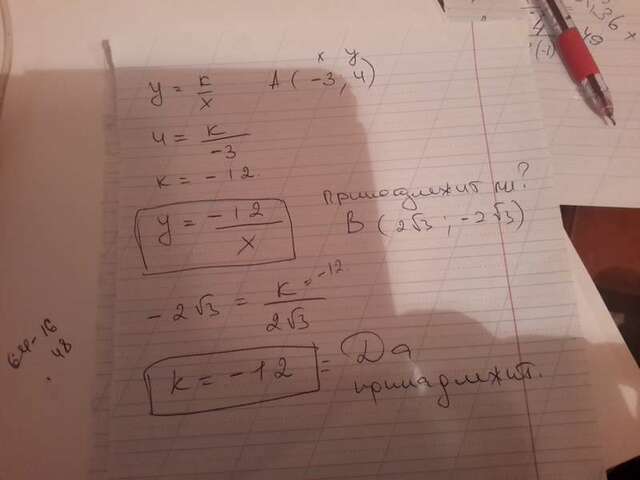 x y
y = k/x A (-3, 4)
4 = k/-3
k = -12.
y = -12/x
принадлежит ли?
B (2√3 ; -2√3)
-2√3 = k=-12/2√3
k = -12 = Да
принадлежит.
64-16
48